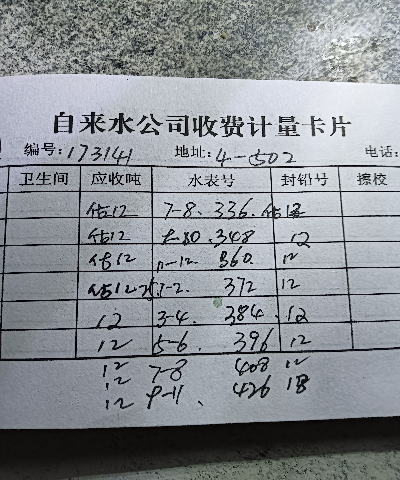 自来水公司收费计量卡片
编号:173141 地址:4-502 电话:
卫生间 应收吨 水表号 封铅号 擦校
估12 7-8. 336. 估12
估12 348 12
估12 11-12. 360. 12
估12 1-2. 372 12
12 3-4. 384. 12
12 5-6. 396 12
12 7-8 408 12
12
12 9-11、 426 18